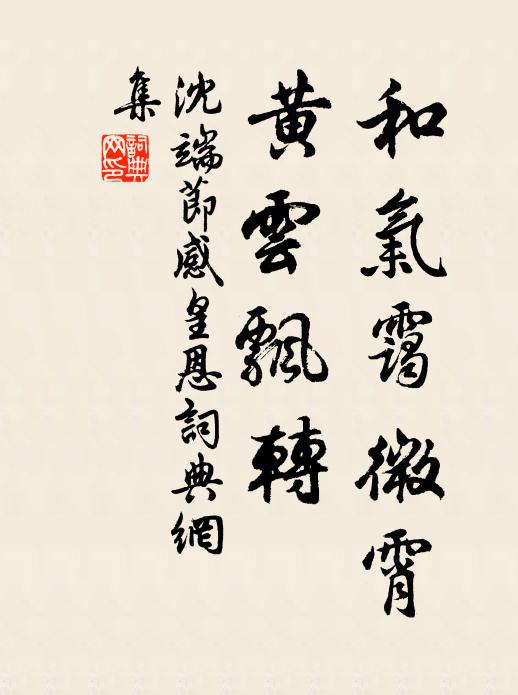 和氣靄微霄
黃雲飄轉
沈端節感皇恩詞典網
集
詞典網印